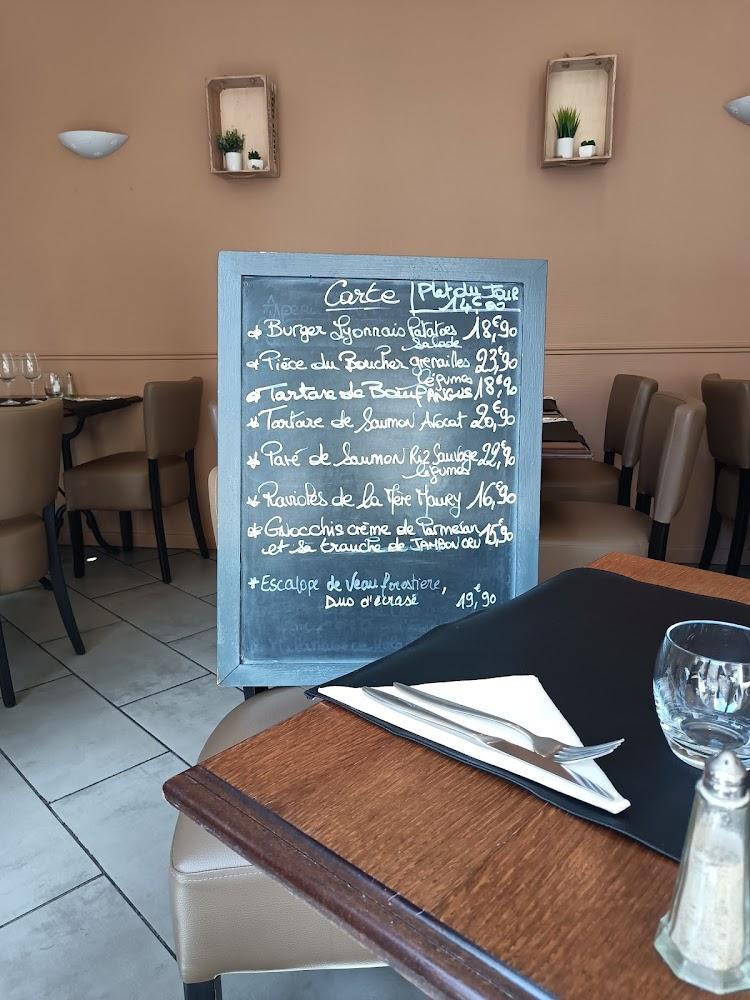 Carte
Plat du Jour
14€00
* Burger Lyonnais Patatoes 18,€90
salade
* Pièce du Boucher grenailles 23,€90
légumes
* Tartare de Bœuf ANGUS 18,€90
* Tartare de Saumon Avocat 20,€90
* Pavé de Saumon Riz Sauvage 22,€90
légumes
* Ravioles de la Mère Maury 16,€90
* Gnocchis crème de Parmesan 15,€90
et sa tranche de JAMBON CRU
* Escalope de Veau forestière,
Duo d'écrasé 19,€90